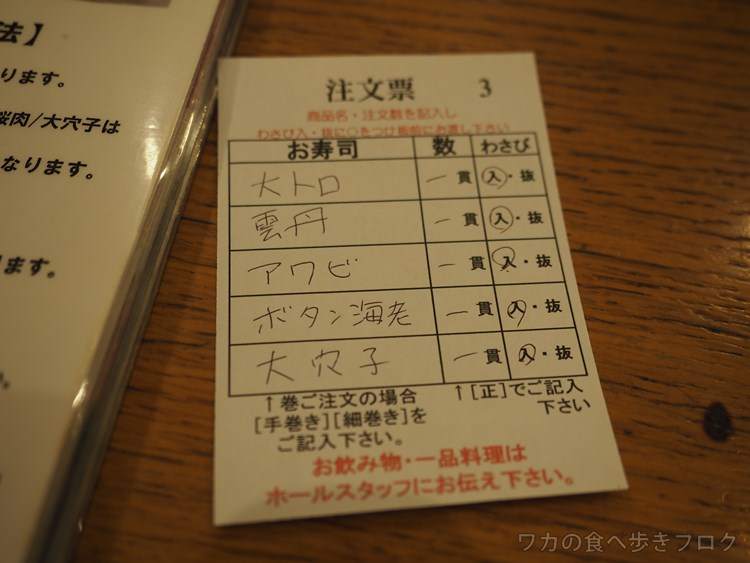 法】
ります。
桜肉/大穴子は
なります。
ます。
注文票 3
商品名・注文数を記入し
わさび入・抜に○をつけ板前にお渡し下さい
お寿司 数 わさび
大トロ 一 貫 入・抜
雲丹 一 貫 入・抜
アワビ 一 貫 入・抜
ボタン海老 一 貫 入・抜
大穴子 一 貫 入・抜
↑巻ご注文の場合
[手巻き][細巻き]を
ご記入下さい。
↑[正]でご記入
下さい
お飲み物・一品料理は
ホールスタッフにお伝え下さい。
ワカの食べ歩きブログ